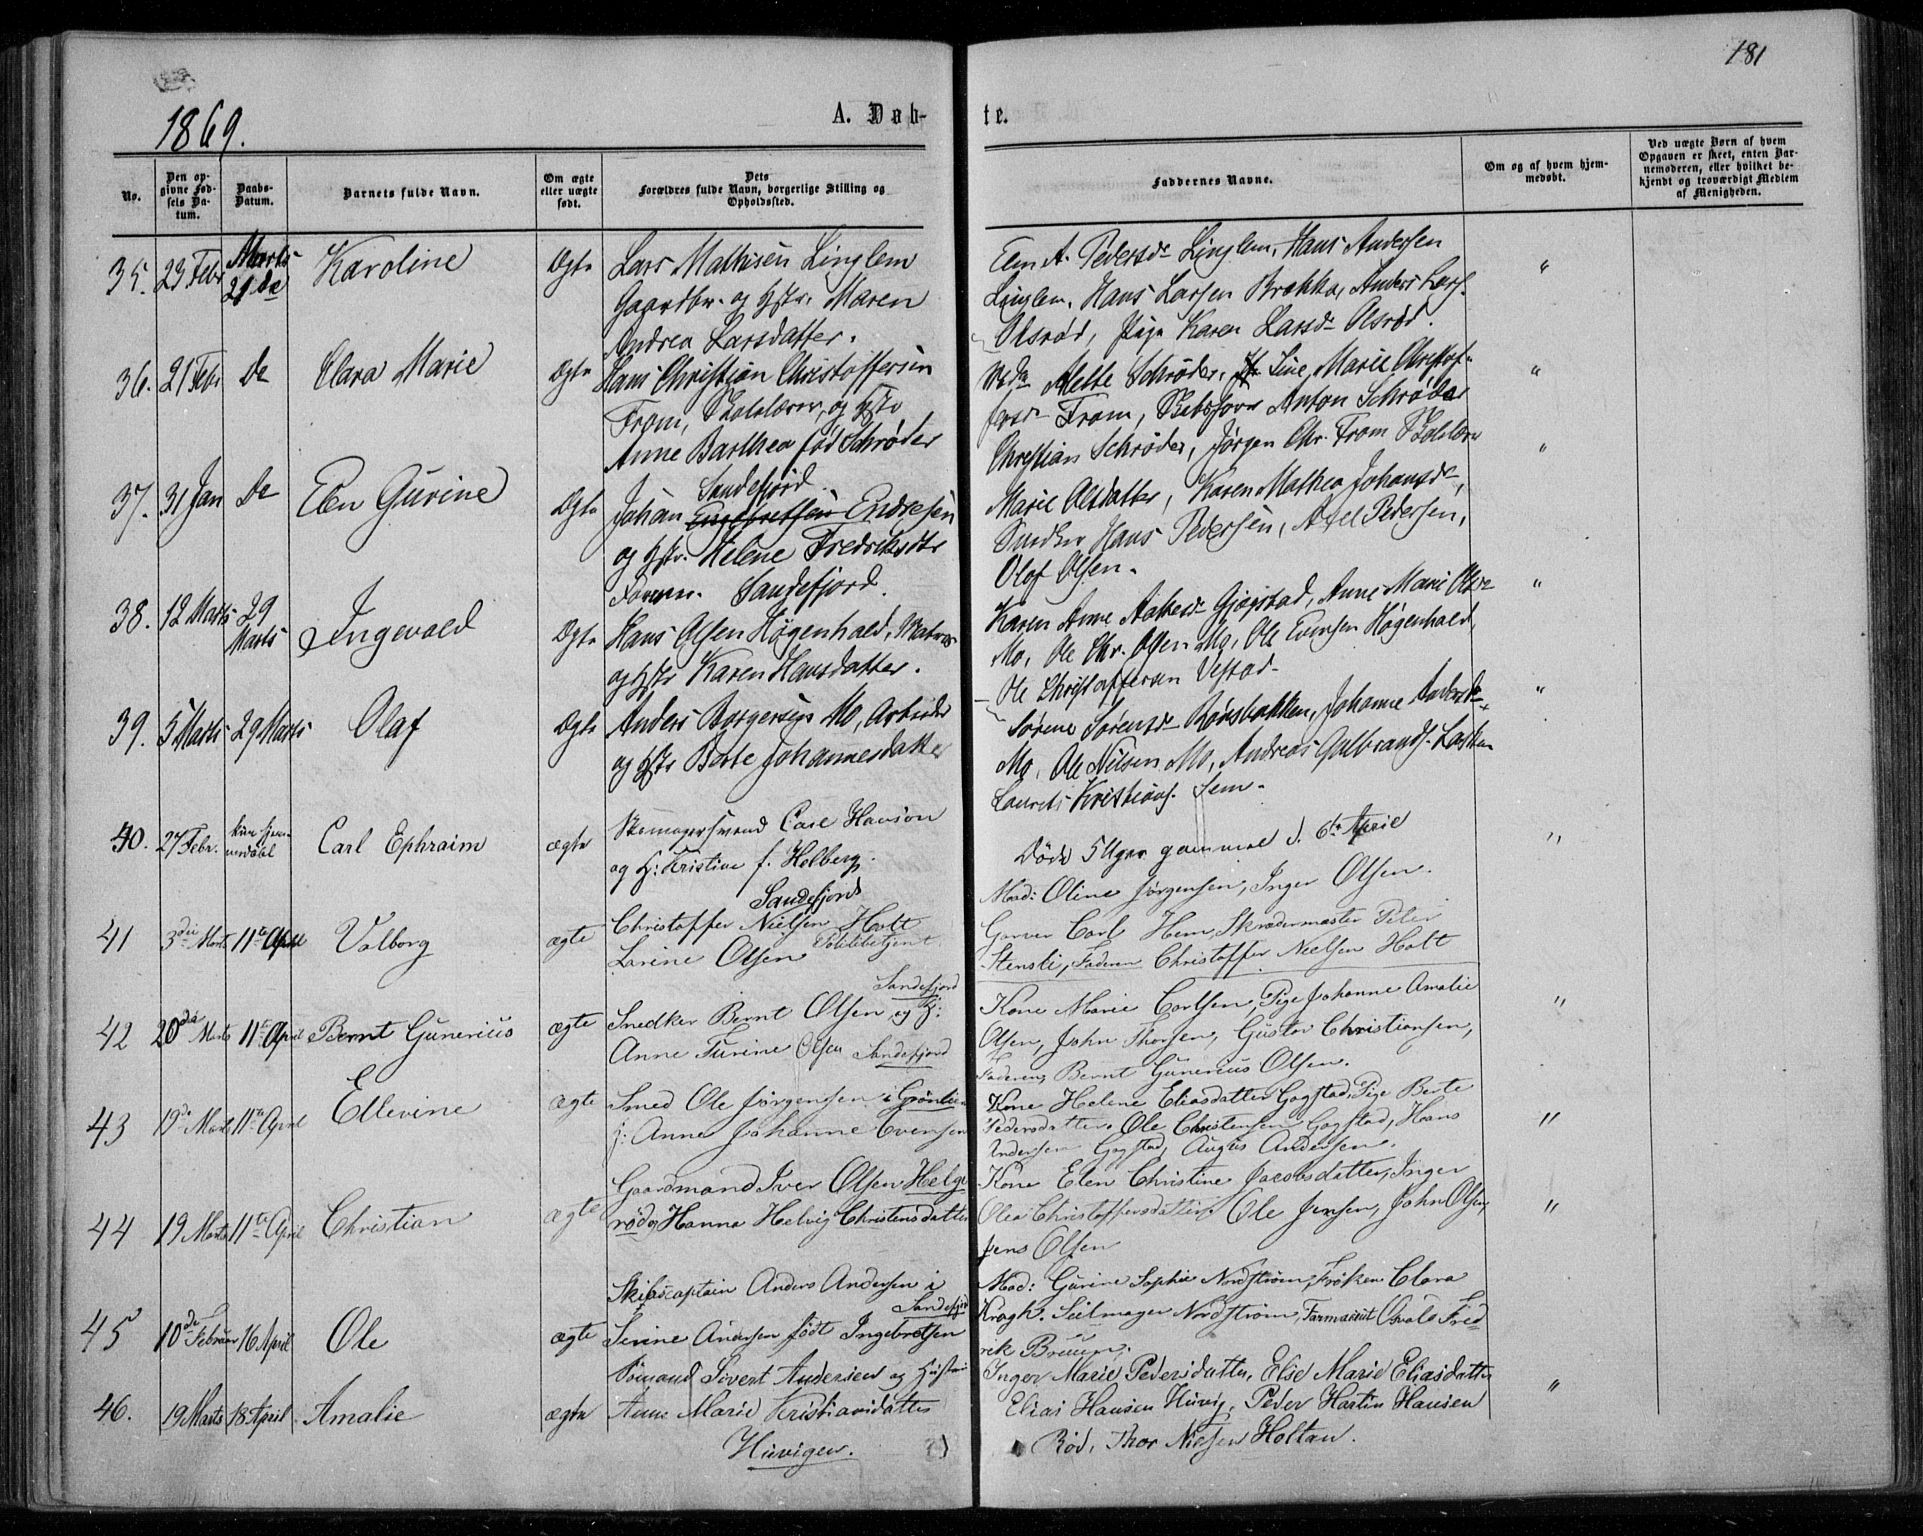 181
1869.
A. Døb-
te.
No.
Den op-
givne Fød-
sels Da-
tum.
Daabs-
Datum.
Barnets fulde Navn.
Om ægte
eller uægte
født.
Dets
Forældres fulde Navn, borgerlige Stilling og
Opholdssted.
Faddernes Navne.
Om og af hvem hjem-
medøbt.
Ved uægte Børn af hvem
Opgaven er skeet, enten Bar-
nemoderen, eller hvilket be-
kjendt og troværdigt Medlem
af Menigheden.
35. 23 Febr Marts 21de Karoline Ægte
Lars Mathisen Linglem
Gaardbr. og Hstr. Maren
Andrea Larsdatter.
A. Pedersdr Linglem, Hans Andersen
Linglem, Hans Larsen Brækka, Anders Lars.
Olsrød, Pige Karen Larsdr Olsrød.
"
36. 21 Febr De Clara Marie Ægte
Hans Christian Christoffersen
From, Skolelærer, og Hstr
Anne Barthea fød Schrøder
Sandefjord.
Mette Schrøder, Line Marie Christof-
fersdr From, Anton Schrøder
Christian Schrøder, Jørgen Chr. From Skolelærer
"
37. 31 Jan De Elen Gurine Ægte
Johan Engebretsen Endresen
og Hstr. Helene Fredriksdtr
Sandefjord.
Marie Olsdatter, Karen Mathea Johansdr,
Snedker Hans Pedersen, Axel Pedersen,
Olaf Olsen.
"
38. 12 Marts 29 Marts Ingevald Ægte
Hans Olsen Høgenhald, Matros
og Hstr Karen Hansdatter.
Karen Anne Gjøgstad, Anne Marie Olsdr
Mo, Ole Chr. Olsen Mo, Ole Evensen Høgenhald,
Ole Christoffersen Vestad.
"
39. 5 Marts 29 Marts Olaf Ægte
Anders Borgersen Mo, Arbeider
og Hstr Berte Johannesdatter
Sørene Sørensdr Rønsbakken, Johanne Andersdr
Mo, Ole Nilsen Mo, Andreas Gulbrands.
Laurits Kristians. Sem.
"
40. 27 Febr. kun hjem-
medøbt Carl Ephraim ægte
Skomagersvend Carl Hanson
og H: Kristine f. Holberg.
Sandefjord
Døde 5 Uger gammel d. 6te April
"
41 3die Marts 11te April Valborg ægte
Christoffer Nielsen Holt
Politibetjent
Larine Olsen
Sandefjord
Mad: Oline Jørgensen, Inger Olsen.
Garver Carl Hem, Skrædermester Peter
Stensli, Faderen Christoffer Nielsen Holt
42 20de Marts 11te April Bernt Gunerius ægte
Snedker Bernt Olsen og H:
Anne Turine Olsen Sandefjord
Kone Marie Carlsen, Pige Johanne Amalie
Olsen, John Thorsen, Gustav Christiansen,
Faderen Bernt Gunerius Olsen.
"
43 19de Marts 11te April Ellevine ægte
Smed Ole Jørgensen i Grønlien
Anne Johanne Evensen
Kone Helene Eliasdatter Gogstad, Pige Berte
Pedersdatter, Ole Christensen Gogstad, Hans
Andersen Gogstad, August Andersen.
"
44 19 Marts 11te April Christian ægte
Gaardmand Iver Olsen Helge
rød og Hanna Helvig Christensdatter
Kone Elen Christine Jacobsdatter, Inger
Olea Christoffersdatter, Ole Jensen, John Olsen
Jens Olsen
"
45 10de Februar 16 April Ole ægte
Skibscaptain Anders Andersen i
Sandefjord
Serine Andersen født Ingebretsen
Mad: Gurine Sophie Nordstrøm, Frøken Clara
Kragh. Seilmager Nordstrøm, Farmaceut Osvald Fred
rik Bruun.
46. 19 Marts 18 April Amalie ægte
Sømand Sivert Andersen og Hustru
Anne Marie Kristiansdatter
Huvigen.
Inger Marie Pedersdatter, Else Marie Eliasdatter
Elias Hansen Huvig, Peder Martin Hansen
Rød, Thor Nielsen Holtan.
"